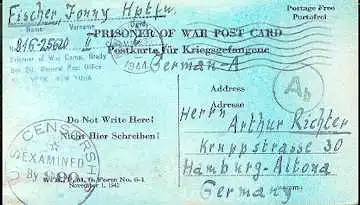 Fischer, Jonny Hptfw.
Postage Free
Portofrei
Name
Vorname
PRISONER OF WAR POST CARD
Postkarte für Kriegsgefangene
Prisoner of War Camp,
General Post Office
NEW YORK
1944
German-A
Address
Adresse
Ab
Do Not Write Here!
Nicht Hier Schreiben!
Herrn
Arthur Richter
Kruppstrasse 30
Hamburg-Altona
Germany
CENSORSH
EXAMINED
By
W. D., P. M. G. Form No. 6-1
November 1, 1942